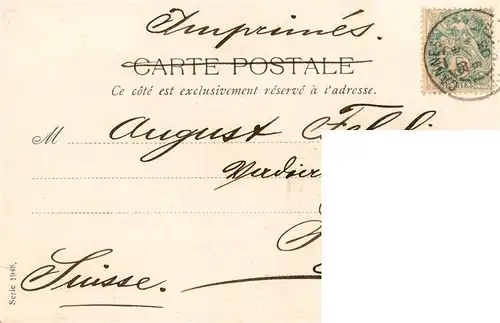 Imprimés.
CARTE POSTALE
Ce côté est exclusivement réservé à l'adresse.
CANNES
M August
Suisse.
Serie 1948.